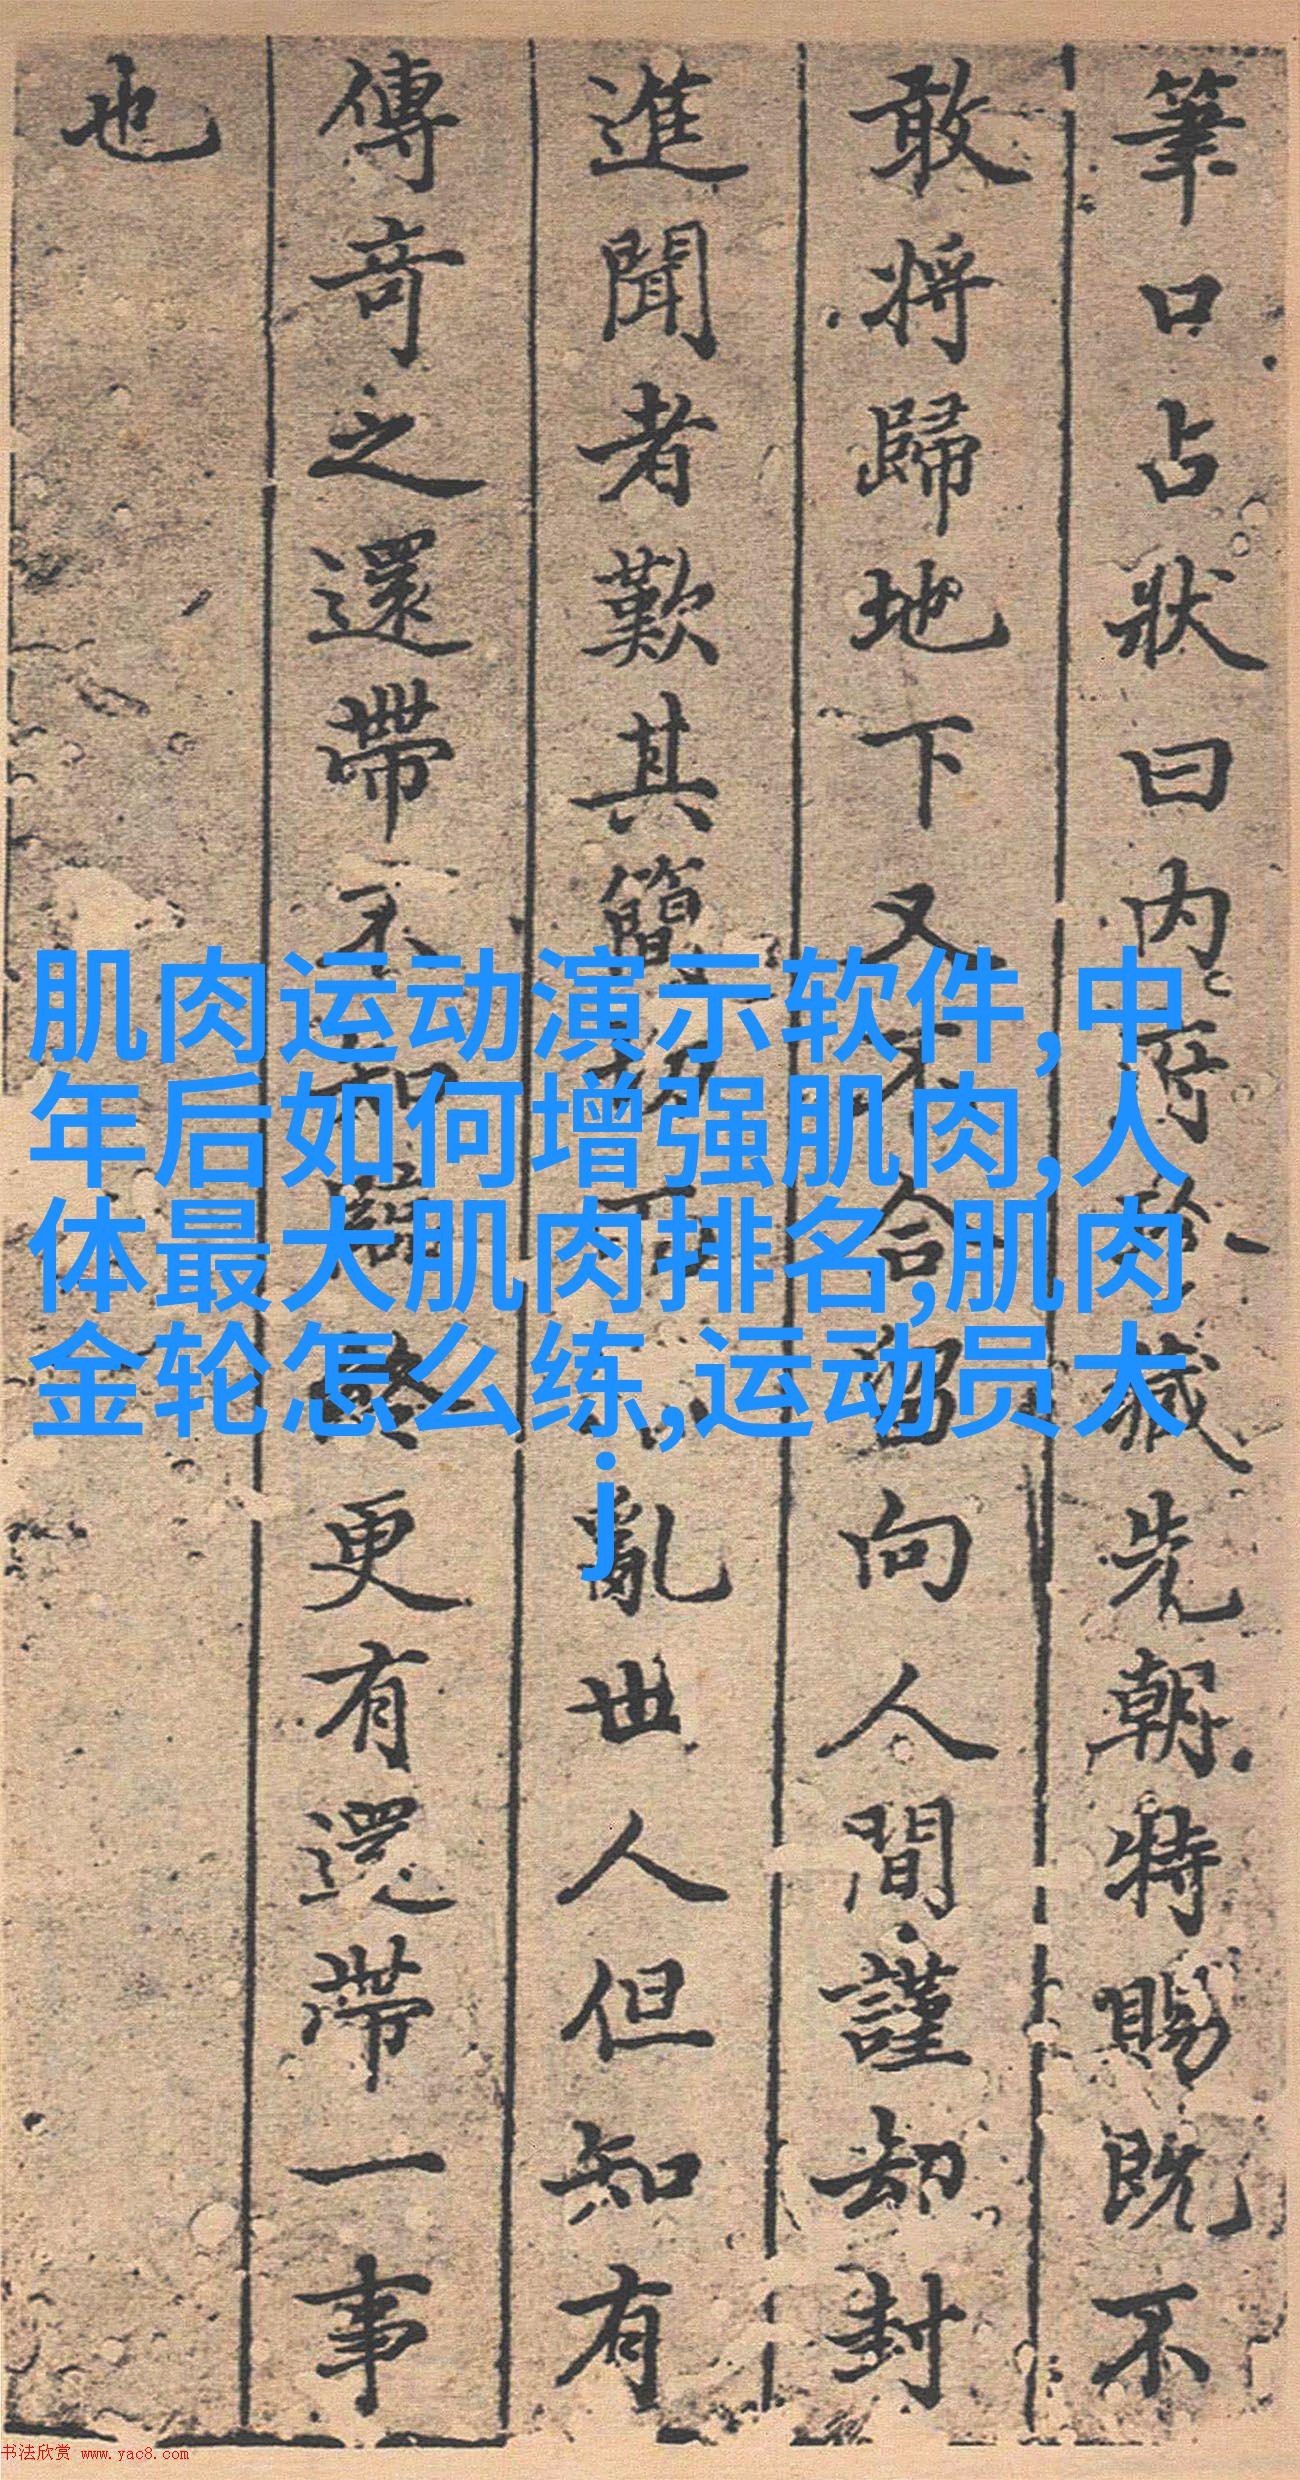 筆口占狀曰内府藏先朝特賜既不
敢將歸地下又不合留向人間謹却封
進聞者歎其簡切亂世人但知有
傳奇之還帶不知更有還帶一事
也
肌肉运动演示软件,中
年后如何增强肌肉,人
体最大肌肉排名,肌肉
金轮怎么练,运动员大
j
书法欣赏 www.yac8.com